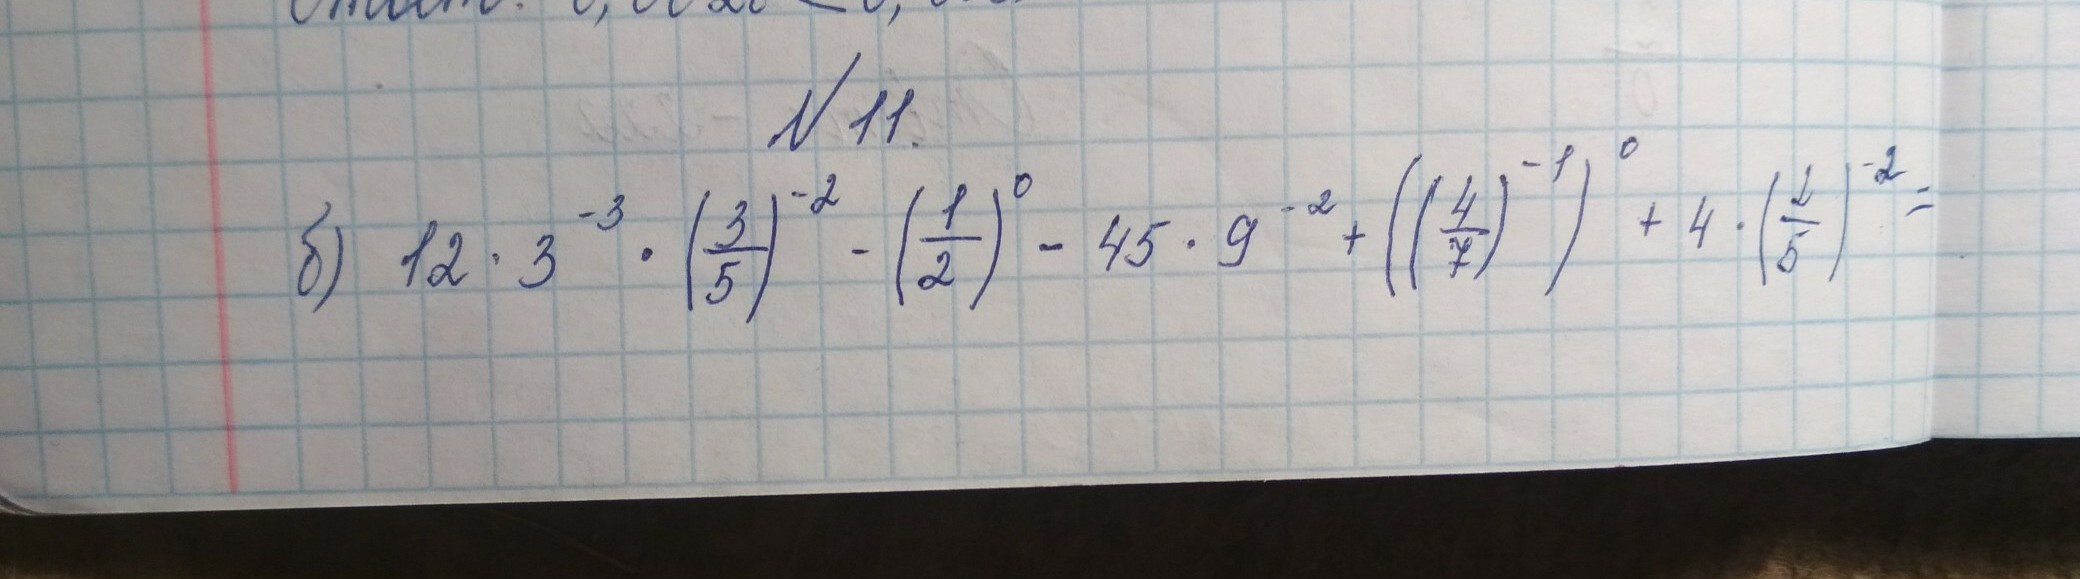 №11.
б) 12 · 3^{-3} · (3/5)^{-2} - (1/2)^0 - 45 · 9^{-2} + ((4/7)^{-1})^0 + 4 · (2/5)^{-2} =